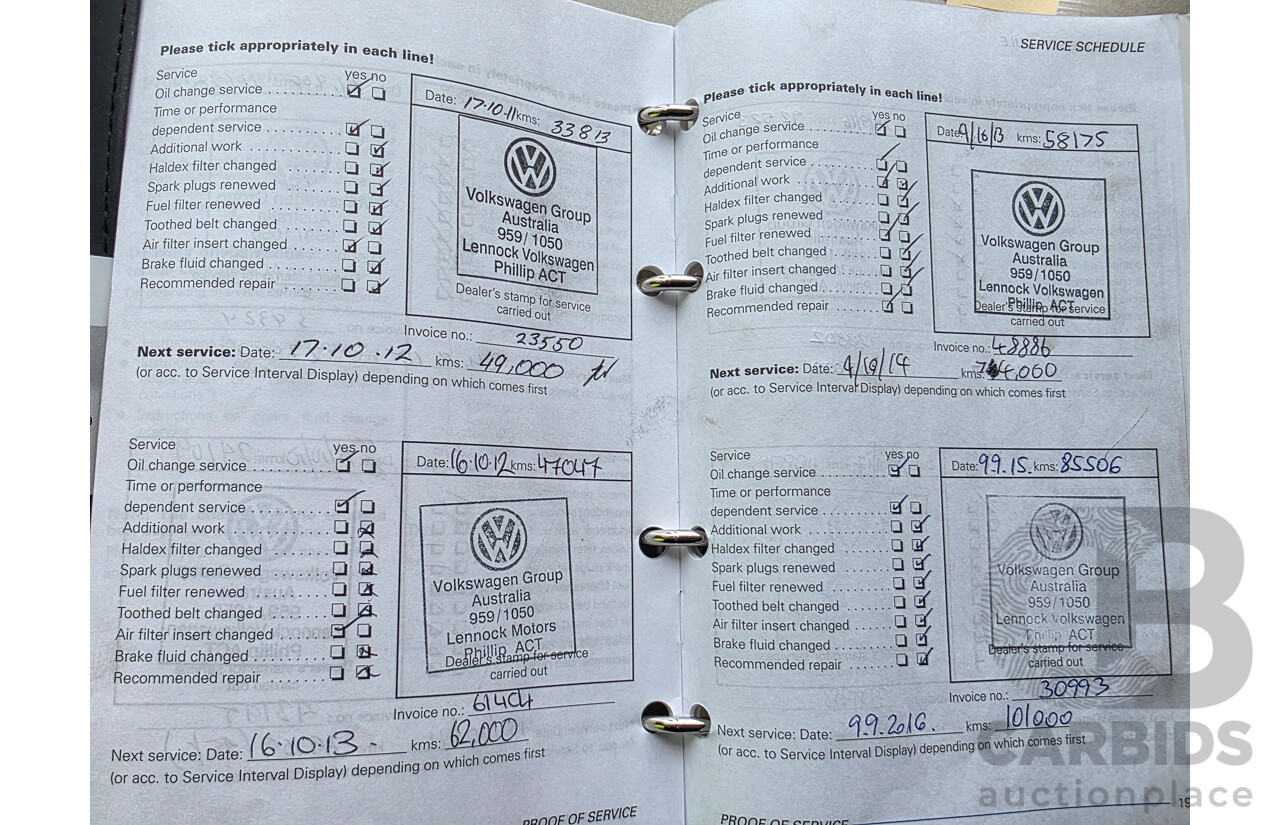 Please tick appropriately in each line!
Service yes no
Oil change service
Time or performance
dependent service
Additional work
Haldex filter changed
Spark plugs renewed
Fuel filter renewed
Toothed belt changed
Air filter insert changed
Brake fluid changed
Recommended repair
Date: 17.10.11 kms: 33813
Volkswagen Group
Australia
959/1050
Lennock Volkswagen
Phillip ACT
Dealer's stamp for service
carried out
Invoice no.: 23550
Next service: Date: 17.10.12 kms: 49,000
(or acc. to Service Interval Display) depending on which comes first
Service yes no
Oil change service
Time or performance
dependent service
Additional work
Haldex filter changed
Spark plugs renewed
Fuel filter renewed
Toothed belt changed
Air filter insert changed
Brake fluid changed
Recommended repair
Date: 16.10.12 kms: 47047
Volkswagen Group
Australia
959/1050
Lennock Motors
Phillip ACT
Dealer's stamp for service
carried out
Invoice no.:
Next service: Date: 16.10.13. kms: 62,000
(or acc. to Service Interval Display) depending on which comes first
PROOF OF SERVICE
SERVICE SCHEDULE
Please tick appropriately in each line!
Service yes no
Oil change service
Time or performance
dependent service
Additional work
Haldex filter changed
Spark plugs renewed
Fuel filter renewed
Toothed belt changed
Air filter insert changed
Brake fluid changed
Recommended repair
Date: kms: 58175
Volkswagen Group
Australia
959/1050
Lennock Volkswagen
Phillip ACT
Dealer's stamp for service
carried out
Invoice no.: 48886
Next service: Date: kms:
(or acc. to Service Interval Display) depending on which comes first
Service yes no
Oil change service
Time or performance
dependent service
Additional work
Haldex filter changed
Spark plugs renewed
Fuel filter renewed
Toothed belt changed
Air filter insert changed
Brake fluid changed
Recommended repair
Date: 99.15. kms: 85506
Volkswagen Group
Australia
959/1050
Lennock Volkswagen
Phillip ACT
Dealer's stamp for service
carried out
Invoice no.: 30993
Next service: Date: 99.2016. kms: 101000
(or acc. to Service Interval Display) depending on which comes first
PROOF OF SERVICE
19
CARBIDS
auctionplace